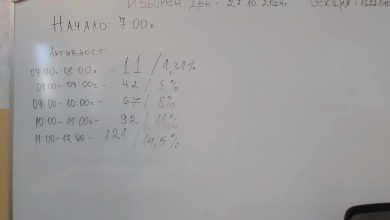 ИЗБОРЕН ДЕН: 27.10.2024г. СЕКЦИЯ:
НАЧАЛО 7 00г
АКТИВНОСТ:
07:00-08:00г - 11 / 1,31%
08:00-09:00г - 42 / 5%
09:00-10:00г - 67 / 8%
10:00-11:00г - 92 / 11%
11:00-12:00 - 121 / 14,5%